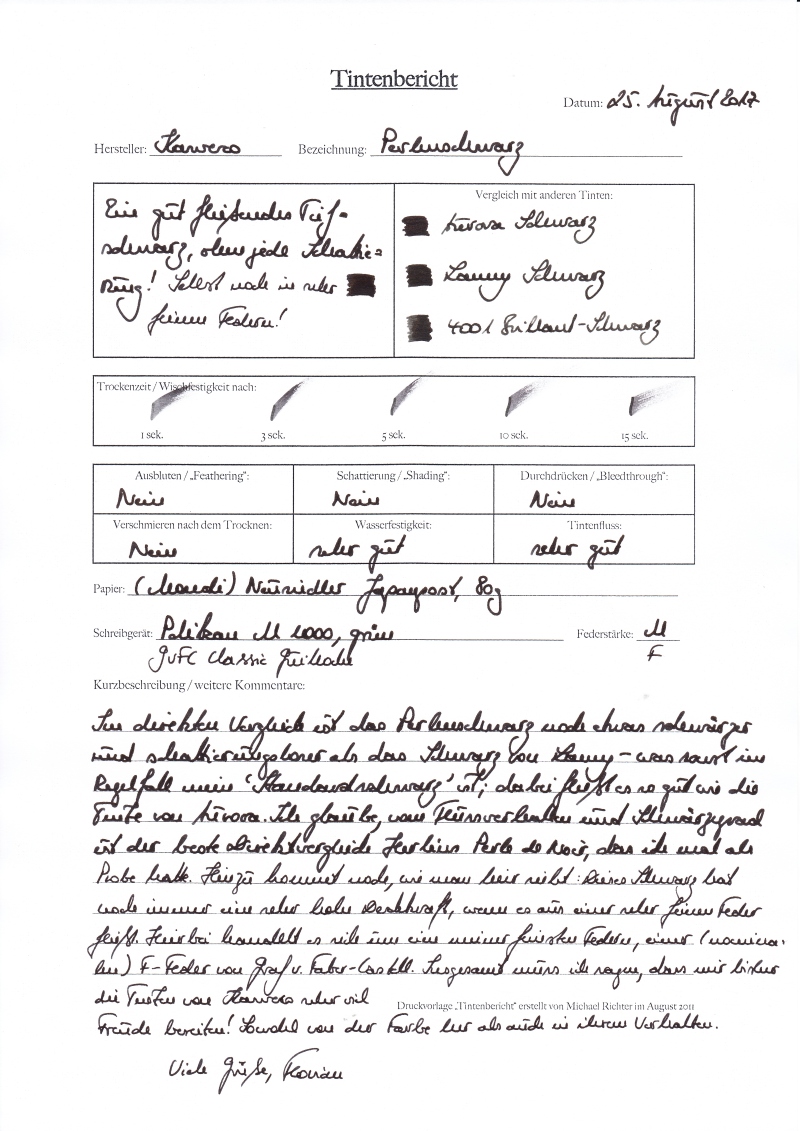 Tintenbericht
Datum: 25. August 2017
Hersteller: Kaweco Bezeichnung: Perlenschwarz
Ein gut fließendes Tief-
schwarz, ohne jede Schattie=
rung! Selbst noch in sehr
feinen Federn!
Vergleich mit anderen Tinten:
Aurora Schwarz
Lamy Schwarz
4001 Brillant-Schwarz
Trockenzeit / Wischfestigkeit nach:
1 sek. 3 sek. 5 sek. 10 sek. 15 sek.
Ausbluten / „Feathering“: Schattierung / „Shading“: Durchdrücken / „Bleedthrough“:
Nein Nein Nein
Verschmieren nach dem Trocknen: Wasserfestigkeit: Tintenfluss:
Nein sehr gut sehr gut
Papier: (Mondi) Neusiedler Japanpost, 80g
Schreibgerät: Pelikan M 1000, grün Federstärke: M
GvFC Classic F
Kurzbeschreibung / weitere Kommentare:
Im direkten Vergleich ist das Perlenschwarz noch etwas schwärzer
und schattierungsloser als das Schwarz von Lamy – was sonst im
Regelfall mein 'Standardschwarz' ist; dabei fließt es so gut wie die
Tinte von Aurora. Ich glaube, vom Flussverhalten und Schwärzegrad
ist der beste Direktvergleich Herbins Perle de Noir, das ich mal als
Probe hatte. Hinzu kommt noch, wie man hier sieht: Dieses Schwarz hat
noch immer eine sehr hohe Deckkraft, wenn es aus einer sehr feinen Feder
fließt. Hierbei handelt es sich um eine meiner feinsten Federn, einer (nomina-
len) F-Feder von Graf v. Faber-Castell. Insgesamt muss ich sagen, dass mir bisher
die Tinten von Kaweco sehr viel
Druckvorlage „Tintenbericht“ erstellt von Michael Richter im August 2011
Freude bereiten! Sowohl von der Farbe her als auch in ihrem Verhalten.
Viele Grüße, Florian